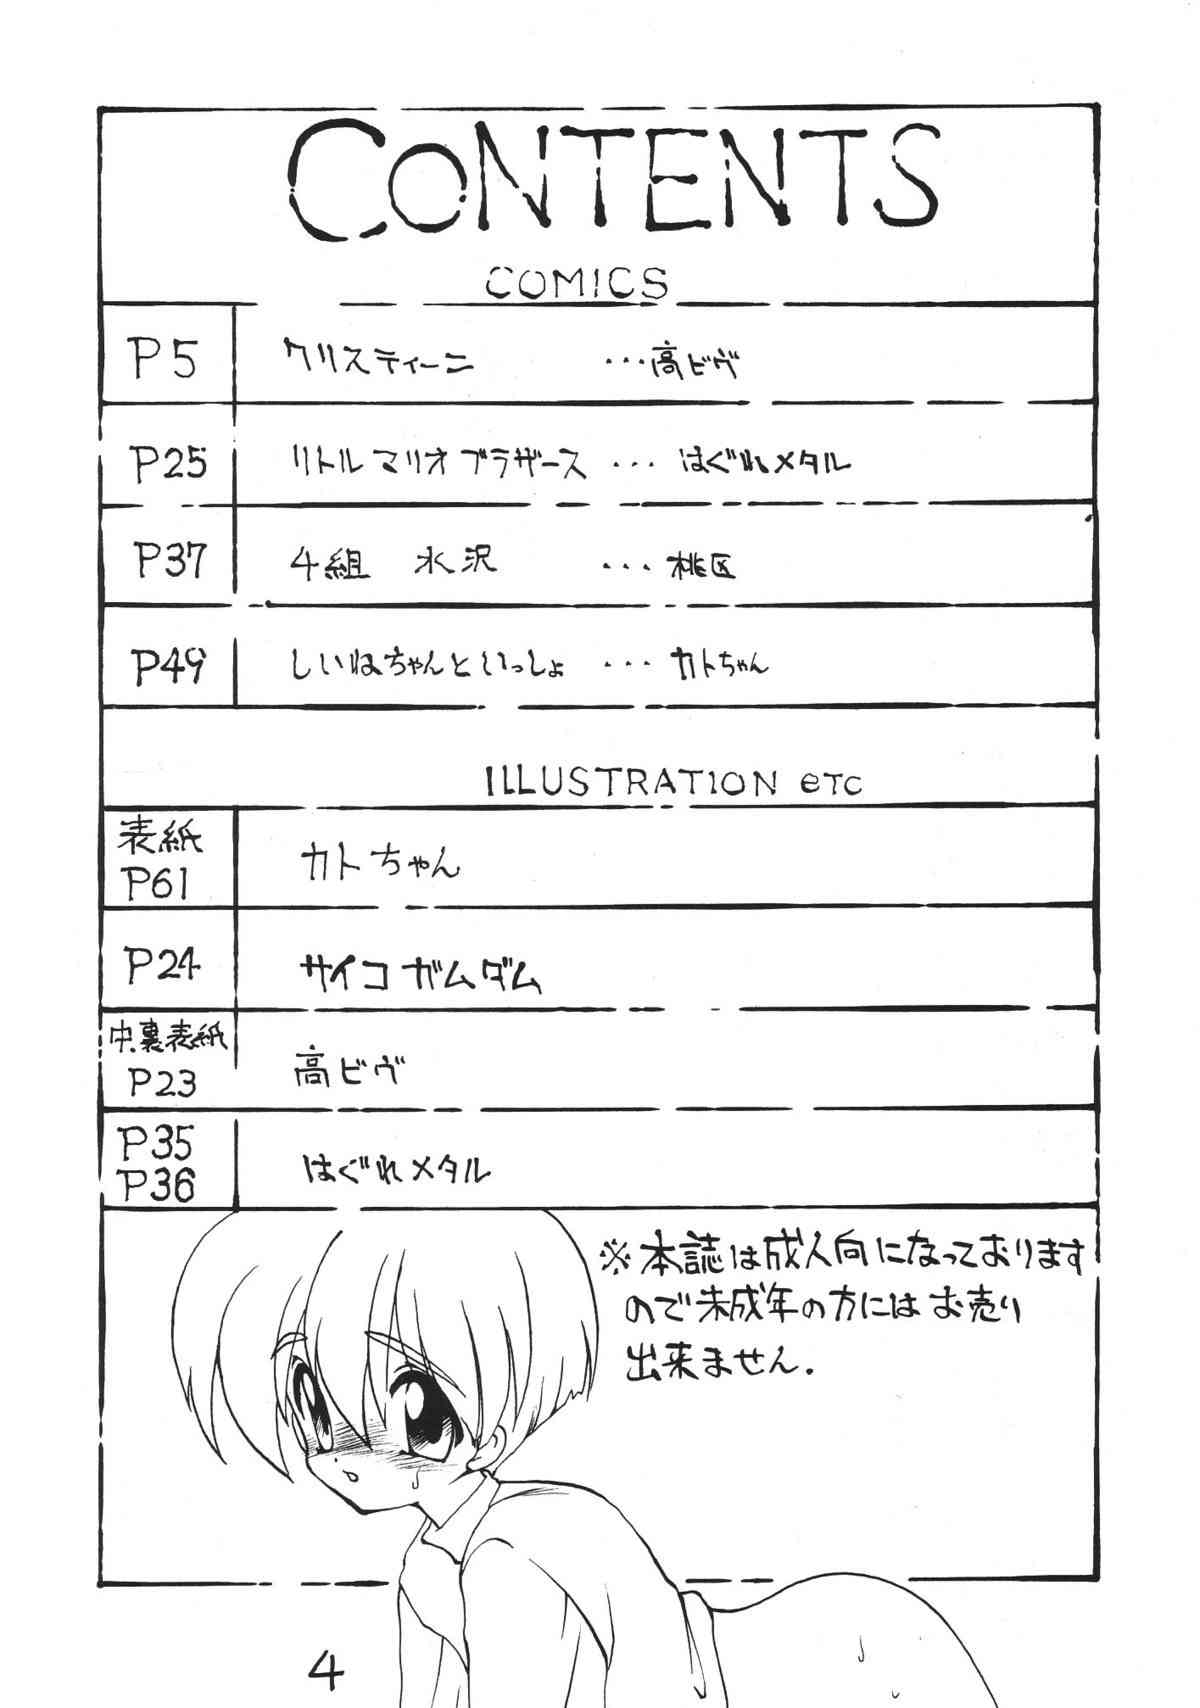 CONTENTS
COMICS
P5 クリスティーニ ・・・高ビヴ
P25 リトルマリオブラザース ・・・ はぐれメタル
P37 4組 水沢 ・・・ 桃区
P49 しいねちゃんといっしょ ・・・ カトちゃん
ILLUSTRATION etc
表紙
P61 カトちゃん
P24 サイコガムダム
中裏表紙
P23 高ビヴ
P35
P36 はぐれメタル
※本誌は成人向になっております
ので未成年の方にはお売り
出来ません.
4